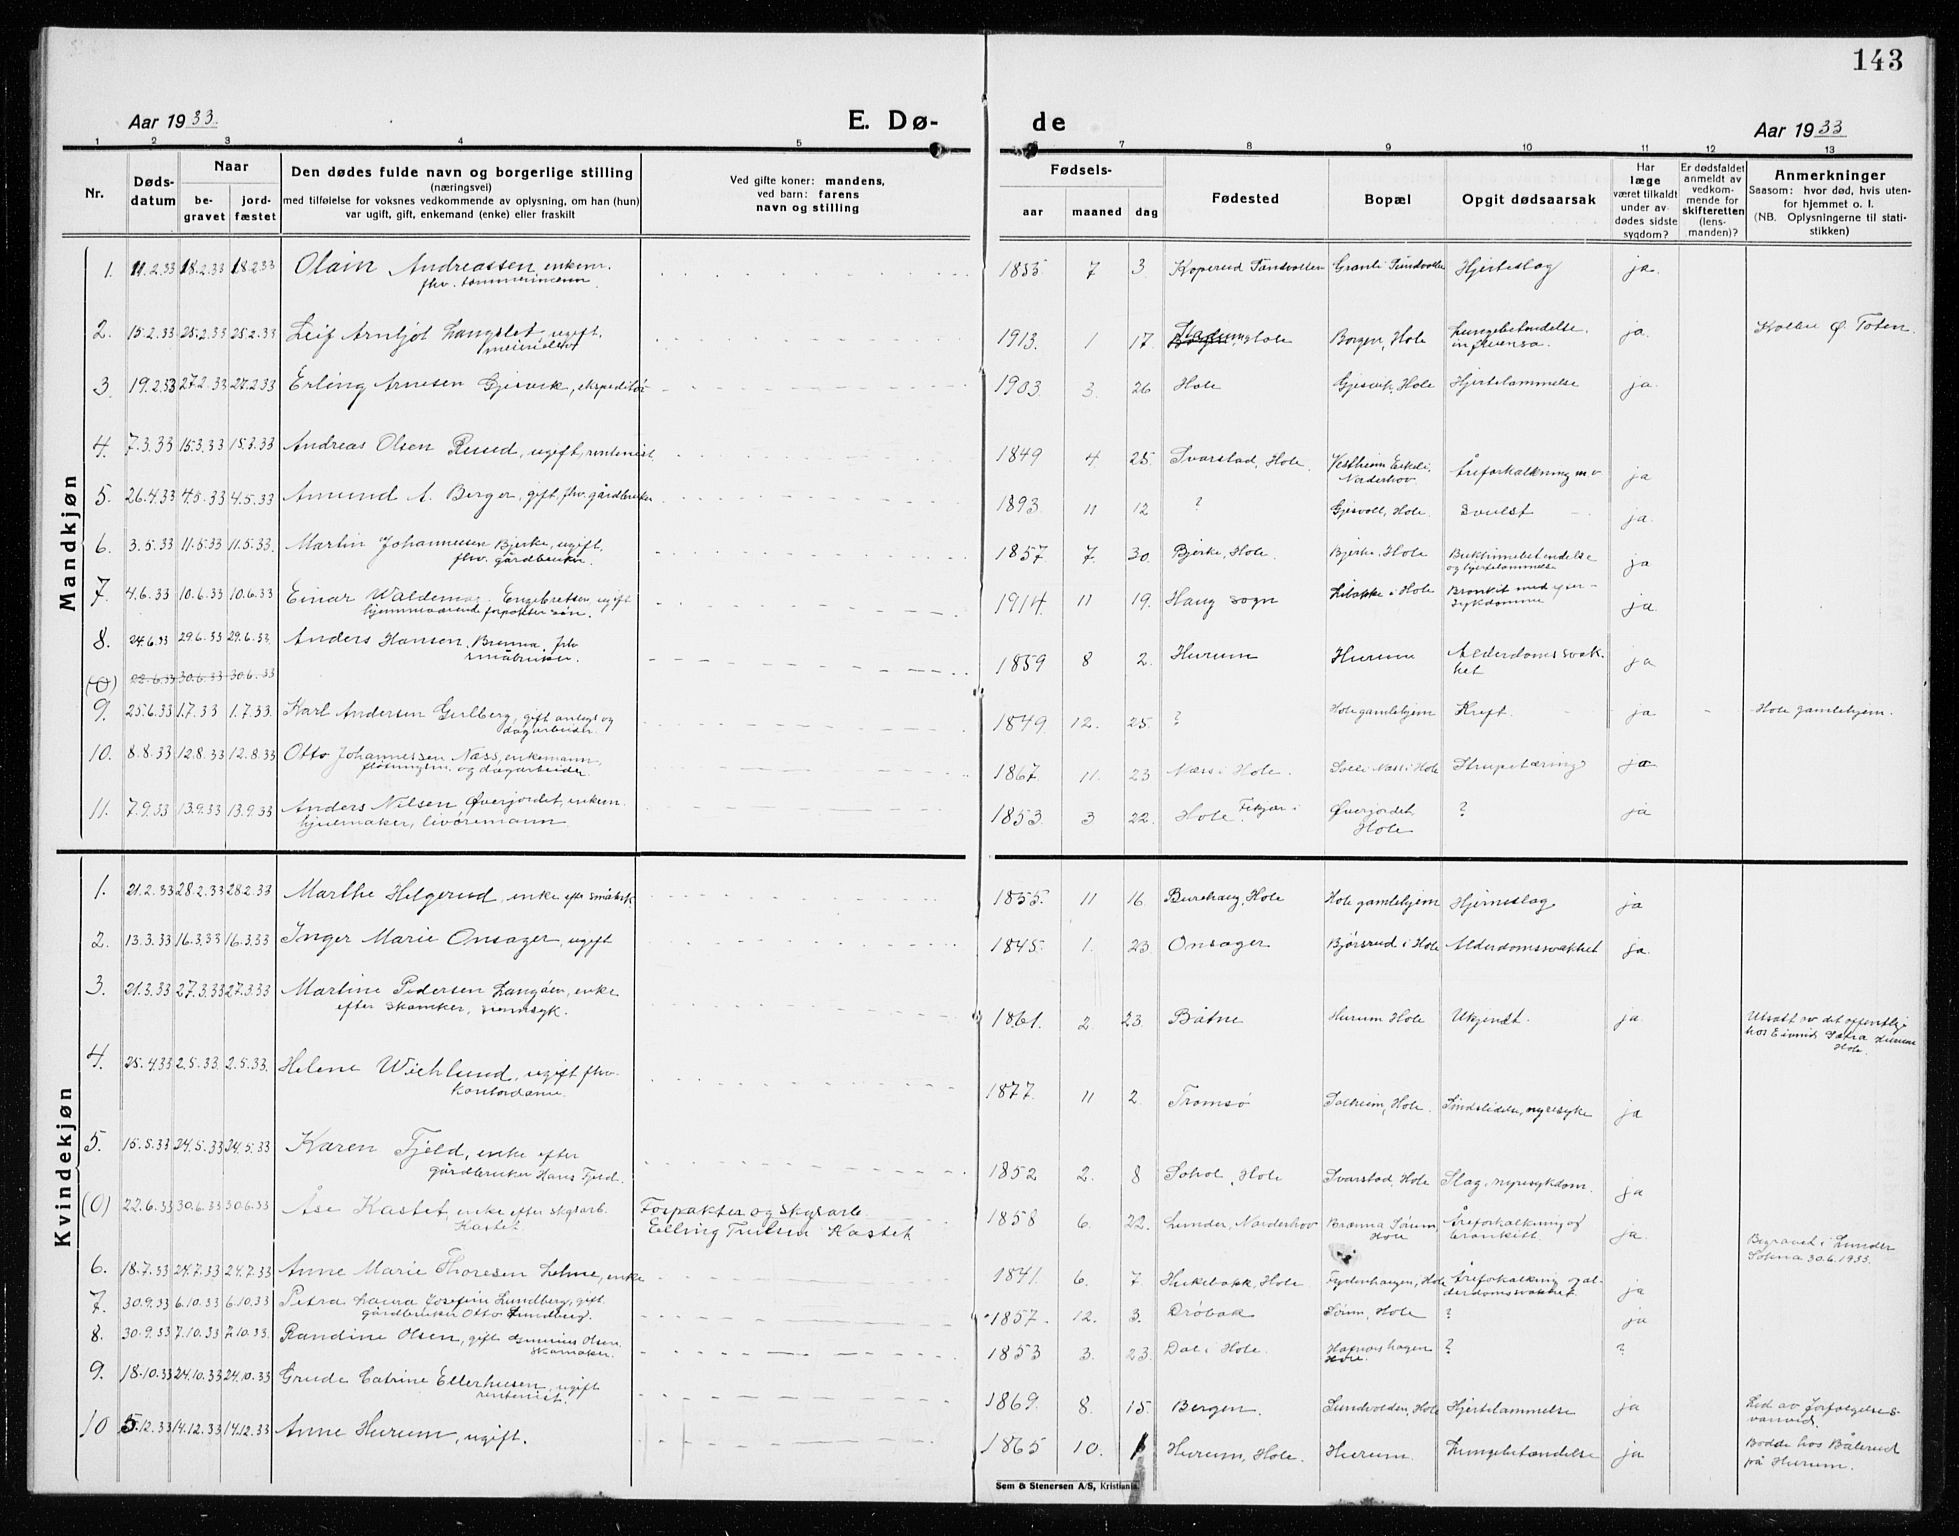 143
Aar 1933.
E. Dø-
de
Aar 1933
1 2 3 4 5 6 7 8 9 10 11 12 13
Nr.
Døds-
datum
Naar
be-
gravet
jord-
fæstet
Den dødes fulde navn og borgerlige stilling
(næringsvei)
med tilføielse for voksnes vedkommende av oplysning, om han (hun)
var ugift, gift, enkemand (enke) eller fraskilt
Ved gifte koner: mandens,
ved barn: farens
navn og stilling
Fødsels-
aar maaned dag
Fødested
Bopæl
Opgit dødsaarsak
Har
læge
været tilkaldt
under av-
dødes sidste
sygdom?
Er dødsfaldet
anmeldt av
vedkom-
mende for
skifteretten
(lens-
manden)?
Anmerkninger
Saasom: hvor død, hvis uten-
for hjemmet o. l.
(NB. Oplysningerne til stati-
stikken)
Mandkjøn
1. 11.2.33 18.2.33 18.2.33 Olain Andreassen, enkem. 1855 7 3 Koperud Tandvolden Granli Sundvollen Hjerteslag ja.
fhv. tømmermann
2. 15.2.33 25.2.33 25.2.33 Leif Arnljot Langslet, ugift, 1913. 1 17. Hole Borgen, Hole Lungebetendelse, ja. Kolbu Ø. Toten.
meierielev
influensa.
3. 19.2.33 27.2.33 27.2.33 Erling Arnesen Gjesvik, ekspeditør 1903 3. 26 Hole Gjesvik, Hole Hjertelammelse ja.
4. 7.3.33 15.3.33 15.3.33 Andreas Olsen Ruud, ugift, rentenist. 1849 4 25. Svarstad, Hole. Vestheim Eikli, Åreforkalkning m.v. ja
Norderhov.
5. 26.4.33 4.5.33 4.5.33 Amund A. Berger, gift, fhv. gårdbruker 1893. 11 12 ? Gjesvoll, Hole. Svulst ja.
6. 3.5.33 11.5.33 11.5.33. Martin Johannessen Bjerke, ugift, 1857. 7. 30. Bjerke, Hole. Bjerke, Hole Bukhinnebetendelse ja
fhv. gårdbruker.
og hjertelammelse
7. 4.6.33 10.6.33 10.6.33 Einar Waldemar Engebretsen, ugift 1914. 11 19. Haug sogn Libakke i Hole Bronkit med efter- ja.
hjemmeværende forpakter søn.
sykdomme
8. 24.6.33 29.6.33 29.6.33. Anders Hansen Brenna, fhv 1859 8 2. Hurum Hurum Alderdomssvak- ja
småbruker.
het
(0) 22.6.33 30.6.33 30.6.33
9. 25.6.33 1.7.33 1.7.33. Karl Andersen Gulberg, gift anlegs og 1849 12. 25. ? Hole gamlehjem Kreft. ja Hole gamlehjem.
dagarbeider.
10. 8.8.33 12.8.33 12.8.33 Otto Johannessen Næss, enkemann, 1867. 11. 23 Næss i Hole. Solli Næss i Hole Strupetæring ja
fløtningsm. og dagarbeider.
11. 7.9.33 13.9.33 13.9.33 Anders Nilsen Øverjordet, enkem. 1853. 3 22. Hole Fekjær i Øverjordet, ? ja
hjulmaker, livøremann.
Hole
Kvindekjøn
1. 21.2.33 28.2.33 28.2.33 Marthe Helgerud, enke efter småbrk 1855. 11 16. Burehaug, Hole Hole gamlehjem Hjerneslag ja
2. 13.3.33 16.3.33 16.3.33 Inger Marie Onsager, ugift 1845. 1. 23. Onsager Bjørsrud i Hole Alderdomssvakhet ja.
3. 21.3.33 27.3.33 27.3.33 Martine Pedersen Langøen, enke 1861. 2. 23. Båtne Hurum Hole Ukjendt. ja. Utsatt av det offentlige
efter skomker, sinnssyk.
hos Eivind Sætra Hurum
Hole.
4. 25.4.33 2.5.33 2.5.33. Helene Wichlund, ugift fhv. 1877. 11 2. Tromsø Solheim, Hole. Sindslidelse, nyresyke ja
kontordame.
5. 15.5.33 24.5.33 24.5.33 Karen Fjeld, enke efter 1852 2. 8 Sohol, Hole Svarstad, Hole Slag, nyresykdom. ja
gårdbruker Hans Fjeld.
(0) 22.6.33 30.6.33 30.6.33 Åse Kastet, enke efter skysarb. Forpakter og skysarb. 1858 6. 22. Lunder, Norderhov Brænna Sørum, Åreforkalkning og ja.
Kastet. Elling Trulsen Kastet Hole bronkitt.
Begravet i Lunder
Sokna 30.6.1933.
6. 18.7.33 24.7.33 24.7.33 Anne Marie Thoresen Lehne, enke 1841. 6. 7. Hukebakk, Hole Fydenhaugen, Hole Åreforkalkning og al- ja
derdomssvakhet.
7. 30.9.33 6.10.33 6.10.33 Petra Laura Josefine Lundberg, gift 1857. 12. 3. Drøbak Sørum, Hole ? ja
gårdbruker Otto Lundberg.
8. 30.9.33 7.10.33 7.10.33. Randine Olsen, gift Gunerius Olsen 1853 3. 23. Dal i Hole. Hafnorshagen ? ?
skomaker. Hole.
9. 18.10.33 24.10.33 24.10.33 Grude Catrine Ellerhusen, ugift 1869. 8. 15. Bergen. Sundvolden, Hole Hjertelammelse ja Led av forfølgelses-
rentenist. vanvid.
10 5.12.33 14.12.33 14.12.33 Anne Hurum, ugift. 1865 10. 1 Hurum, Hole. Hurum. Lungebetændelse ja Bodde hos Bålerud
på Hurum.
Sem & Stenersen A/S, Kristiania.